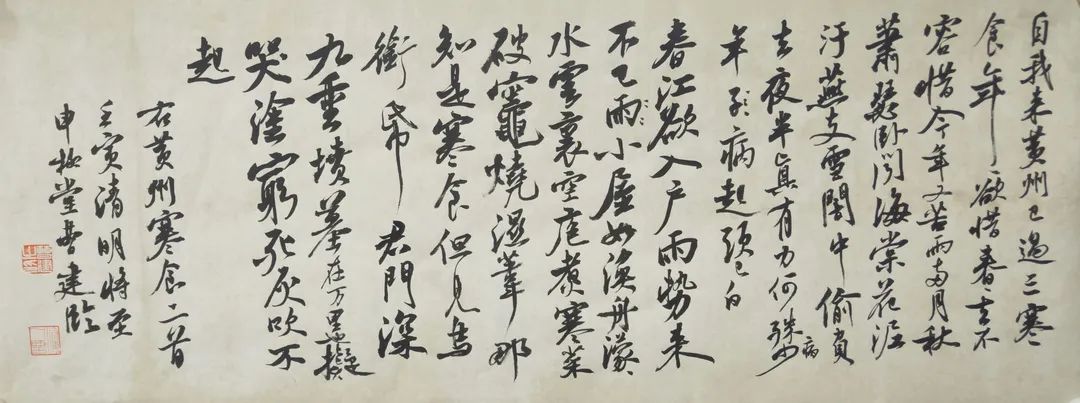 自我来黄州已過三寒
食年〻欲惜春去不
容惜今年又苦雨兩月秋
蕭瑟卧聞海棠花泥
汙燕支雪闇中偷負
去夜半真有力何殊少病
年子病起頭已白
春江欲入户雨勢来
不已雨〻小屋如漁舟濛〻
水雲裏空庖煮寒菜
破竈燒濕葦那
知是寒食但見烏
銜帋君門深
九重墳墓在万里也擬
哭塗窮死灰吹不
起
右黄州寒食二首
壬寅清明将至
申椒堂曹建臨